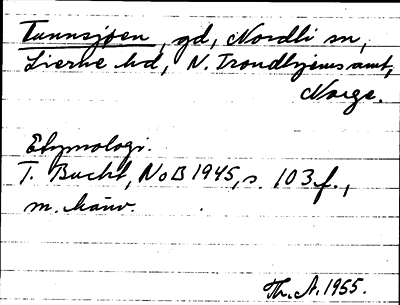 Tunnsjøen, gd, Nordli sn,
Lierne hd, N. Trondhjems amt,
Norge.
Etymologi.
T. Bucht, NoB 1945, s. 103 f.,
m. hänv.
Th. A. 1955.